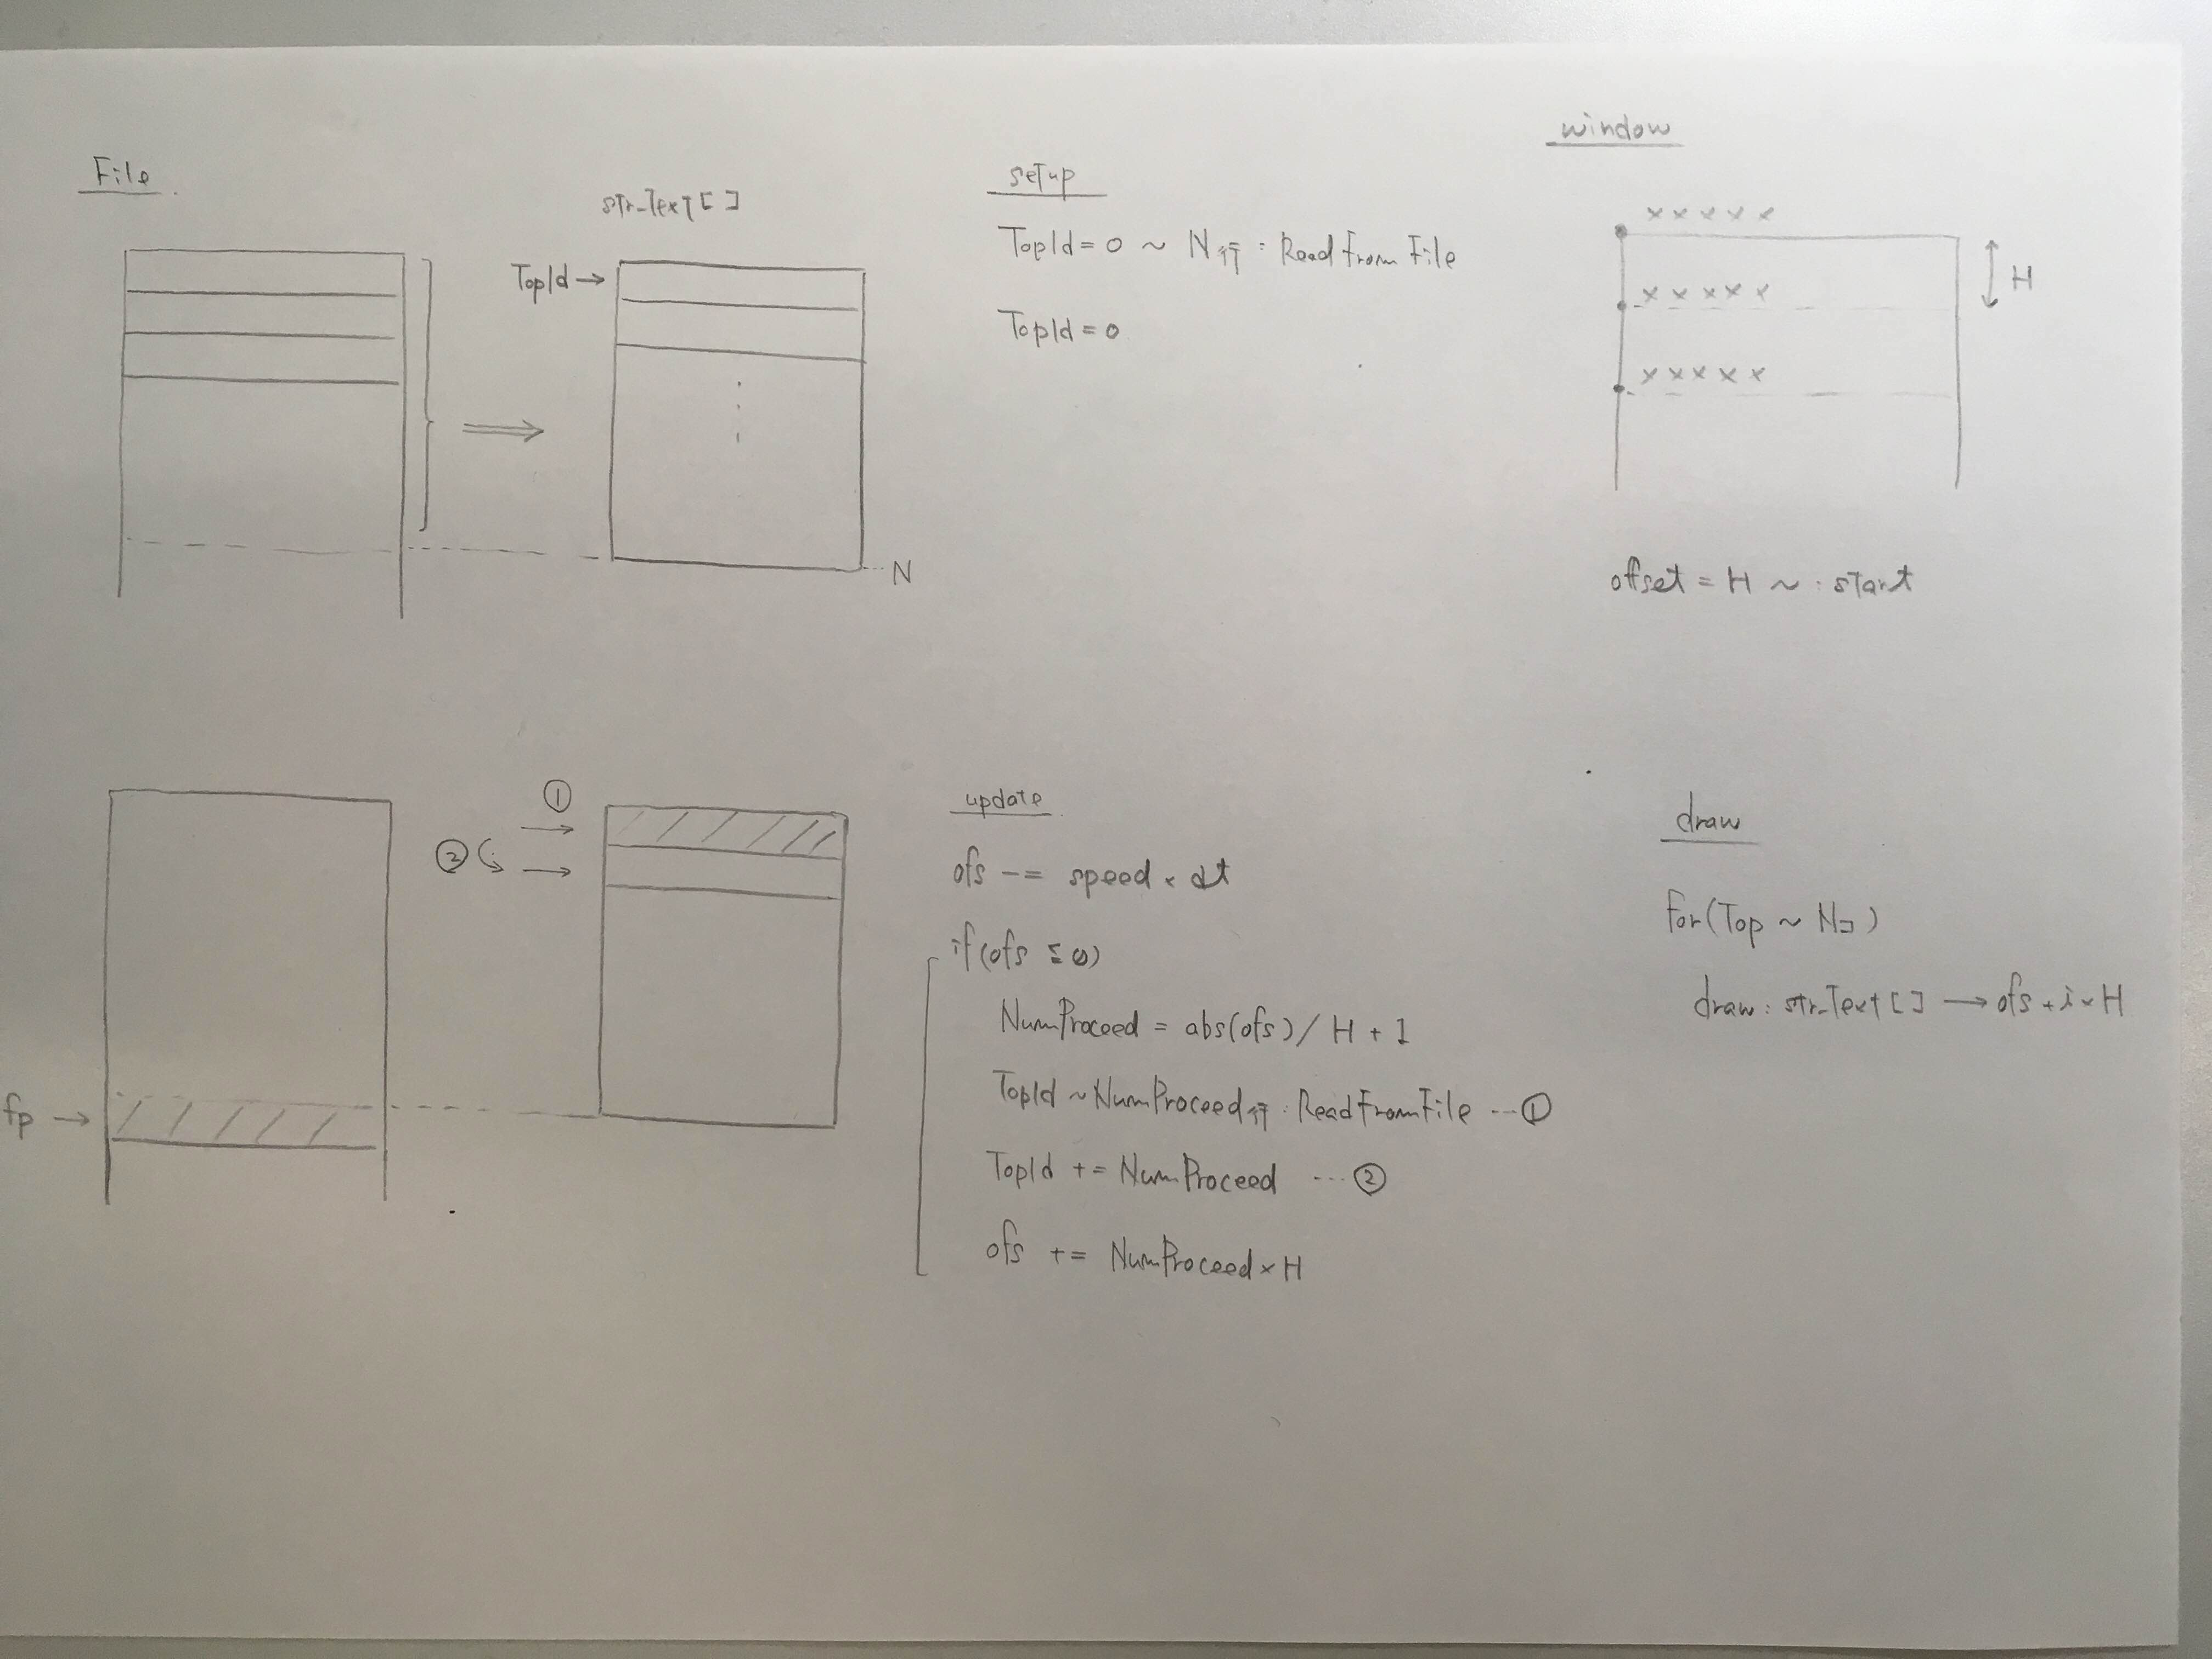 File
str_Text[ ]
TopId →
N
setup
TopId = 0 ~ N行 : ReadFromFile
TopId = 0
window
x x x x x
x x x x x
x x x x x
H
offset = H ~ : start
fp →
①
②
update
ofs -= speed × dt
if(ofs ≦ 0)
NumProceed = abs(ofs) / H + 1
TopId ~ NumProceed行 : ReadFromFile ... ①
TopId += NumProceed ... ②
ofs += NumProceed × H
draw
for(Top ~ Nコ)
draw : str_Text[ ] → ofs + i × H